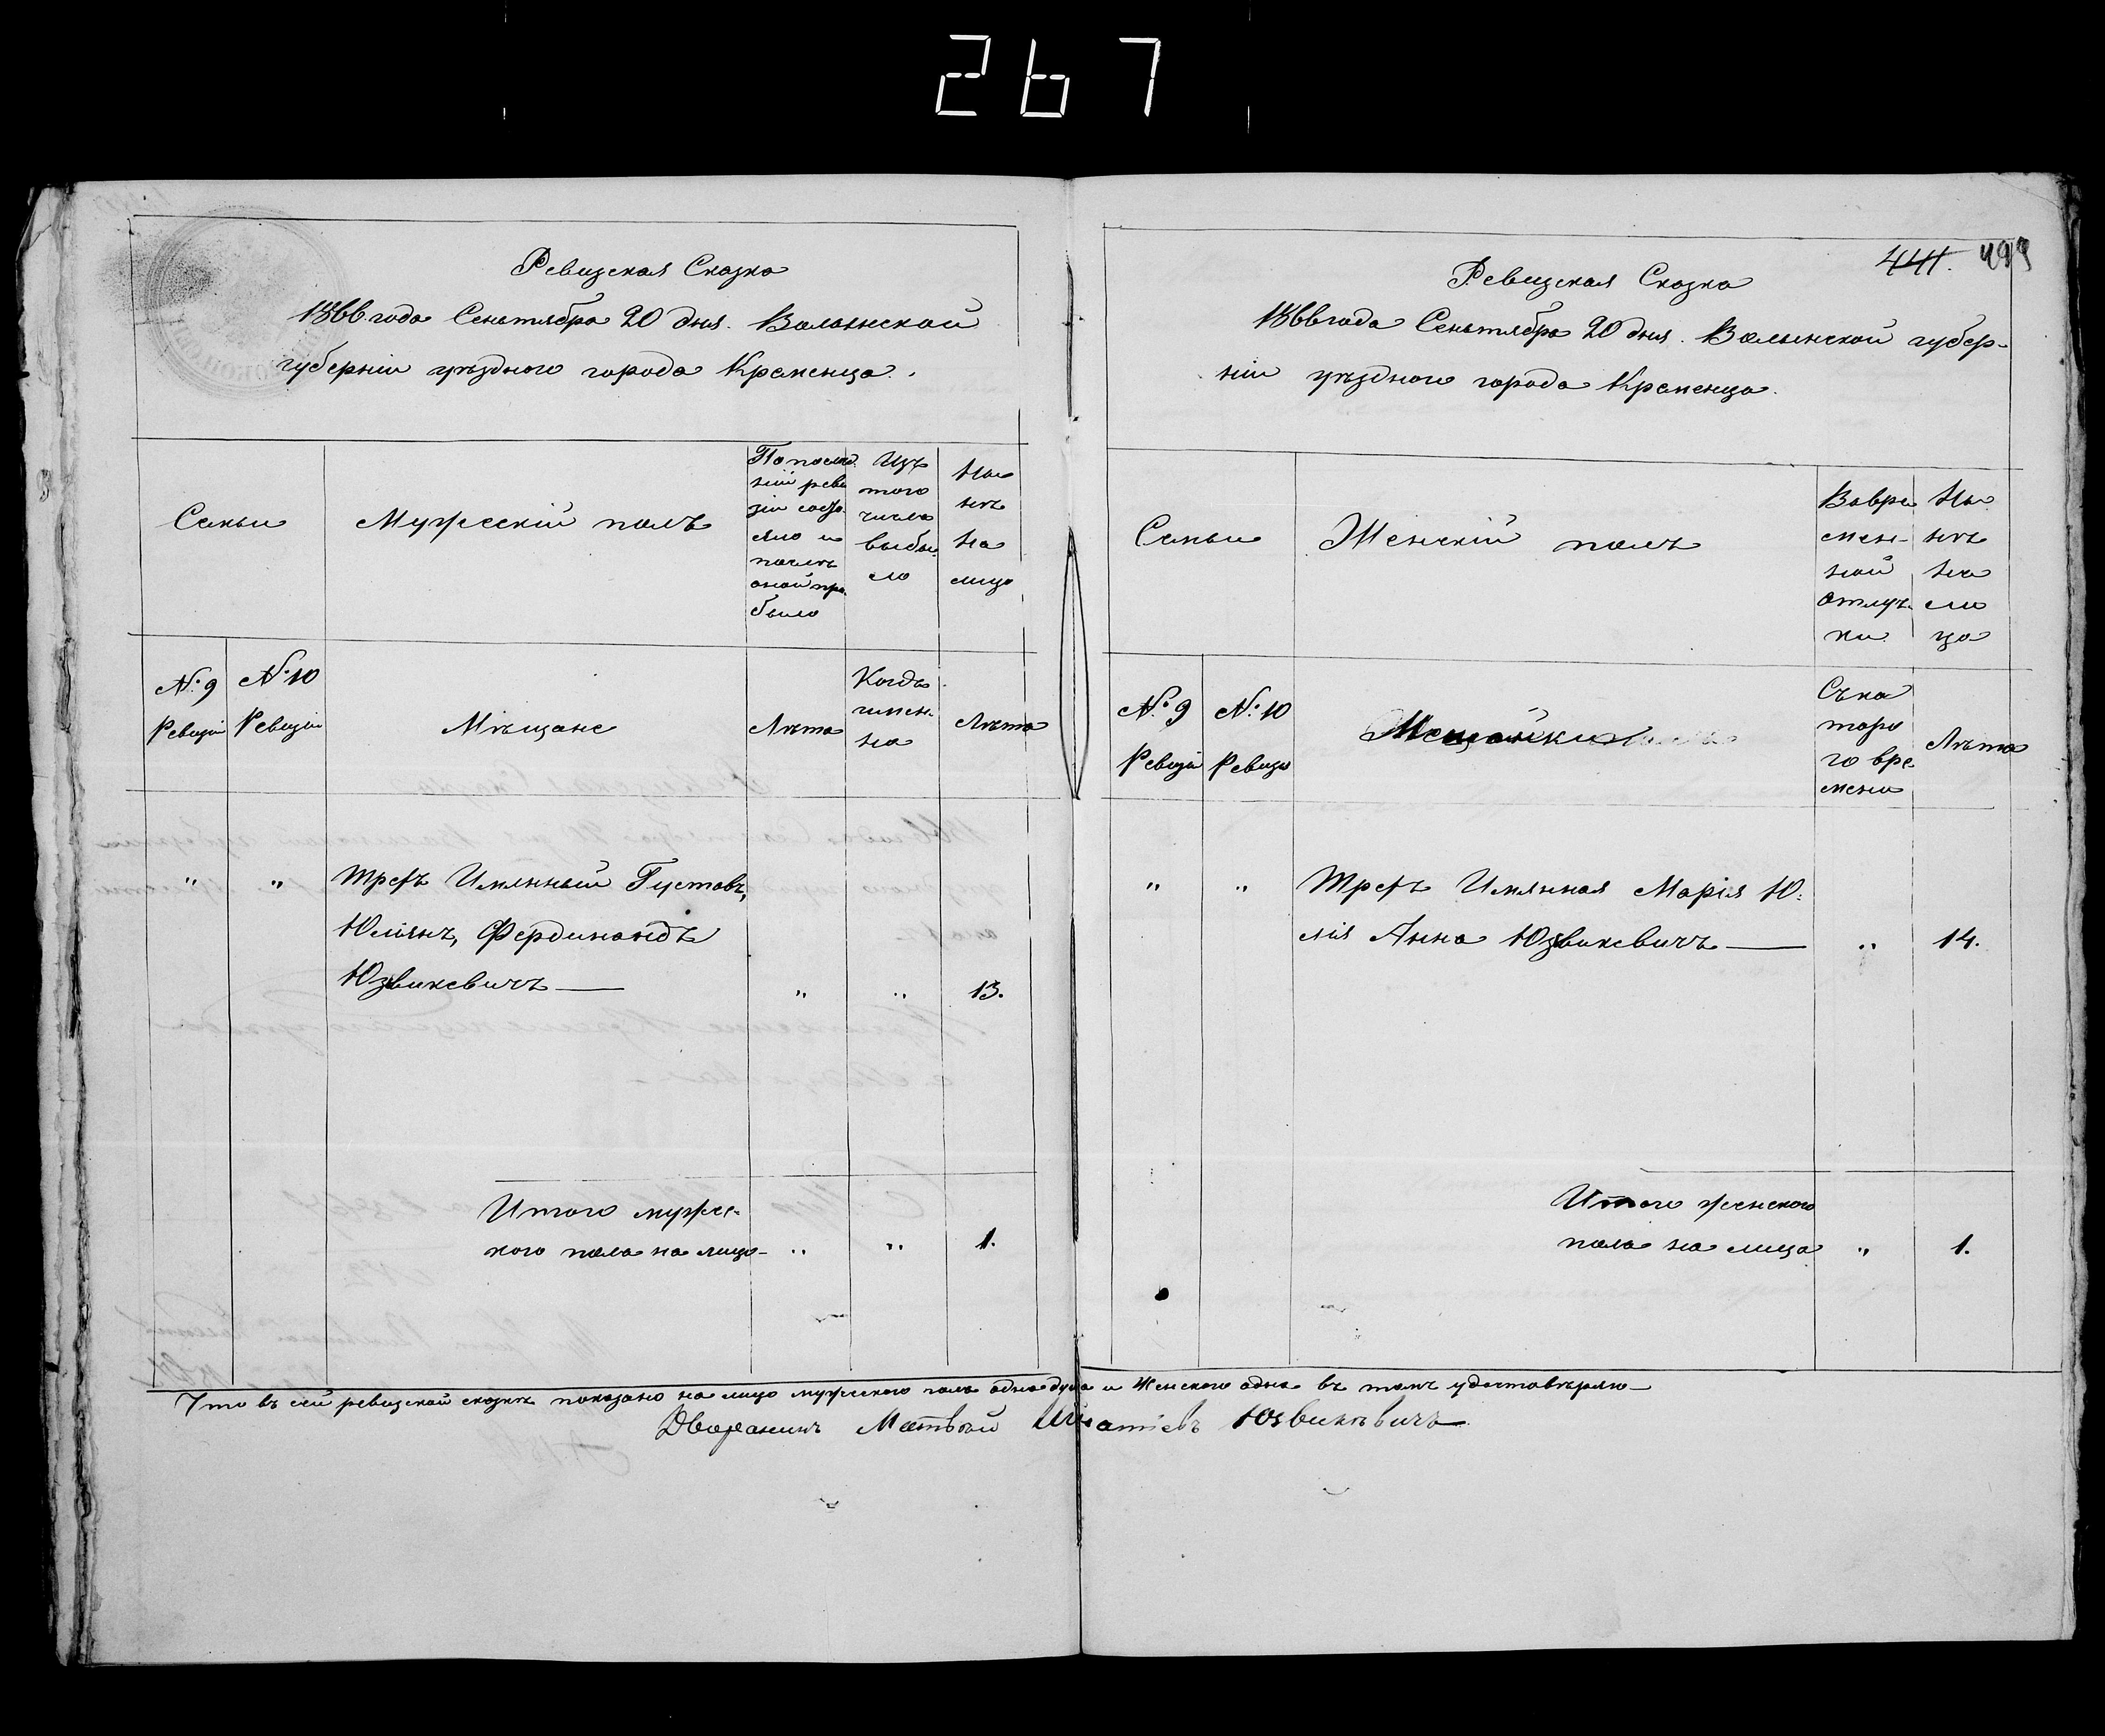 267
Ревизская Сказка
1866 года Сентября 20 дня. Волынской
губерніи уѣзднаго города Кременца.
Семьи
Мужескій полъ
По послѣд
ній реви
зіи состо
яло и
послѣ
оной при
было
Изъ
того
числа
выбы
ло
Ны
нѣ
на
лицо
№ 9
Ревизіи
№ 10
Ревизіи
Мѣщане
Лѣта
Когда
имен.
но
Лѣта
" "
Трехъ Имянный Густавъ,
Юліянъ, Фердинандъ
Юзвикевичъ — " " 13.
Итого мужес-
кого пола на лицо - " " 1.
441. 499
Ревизская Сказка
1866 года Сентября 20 дня. Волынской губер-
ніи уѣзднаго города Кременца.
Семьи
Женскій полъ
Вовре
мен-
ной
отлуч-
ки
Ны
нѣ
на
ли
цо
№ 9
Ревизіи
№ 10
Ревизіи
Мещанки
Съ ко
торо
го вре
мени
Лѣта
" "
Трехъ Имянная Марія Ю-
лія Анна Юзвикевичъ — " 14.
Итого женского
пола на лицо " 1.
Что въ сей ревизской сказкѣ показано на лицо мужеского пола одна душа и Женского одна въ томъ удостовѣряю —
Дворанинъ Матвѣй Игнатіевъ Юзвикѣвичъ